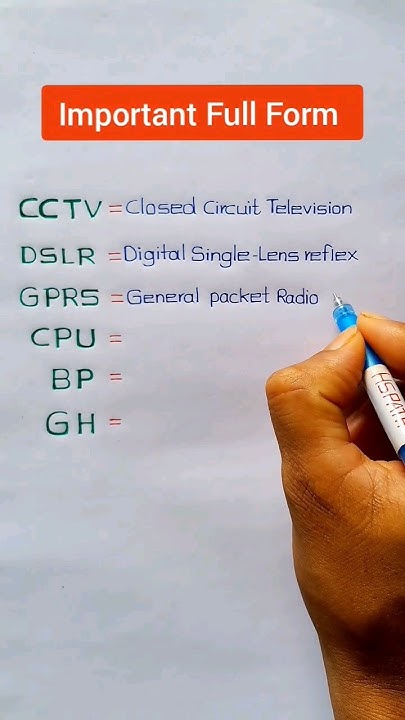 Important Full Form
CCTV = Closed Circuit Television
DSLR = Digital Single-Lens reflex
GPRS = General packet Radio
CPU =
BP =
GH =